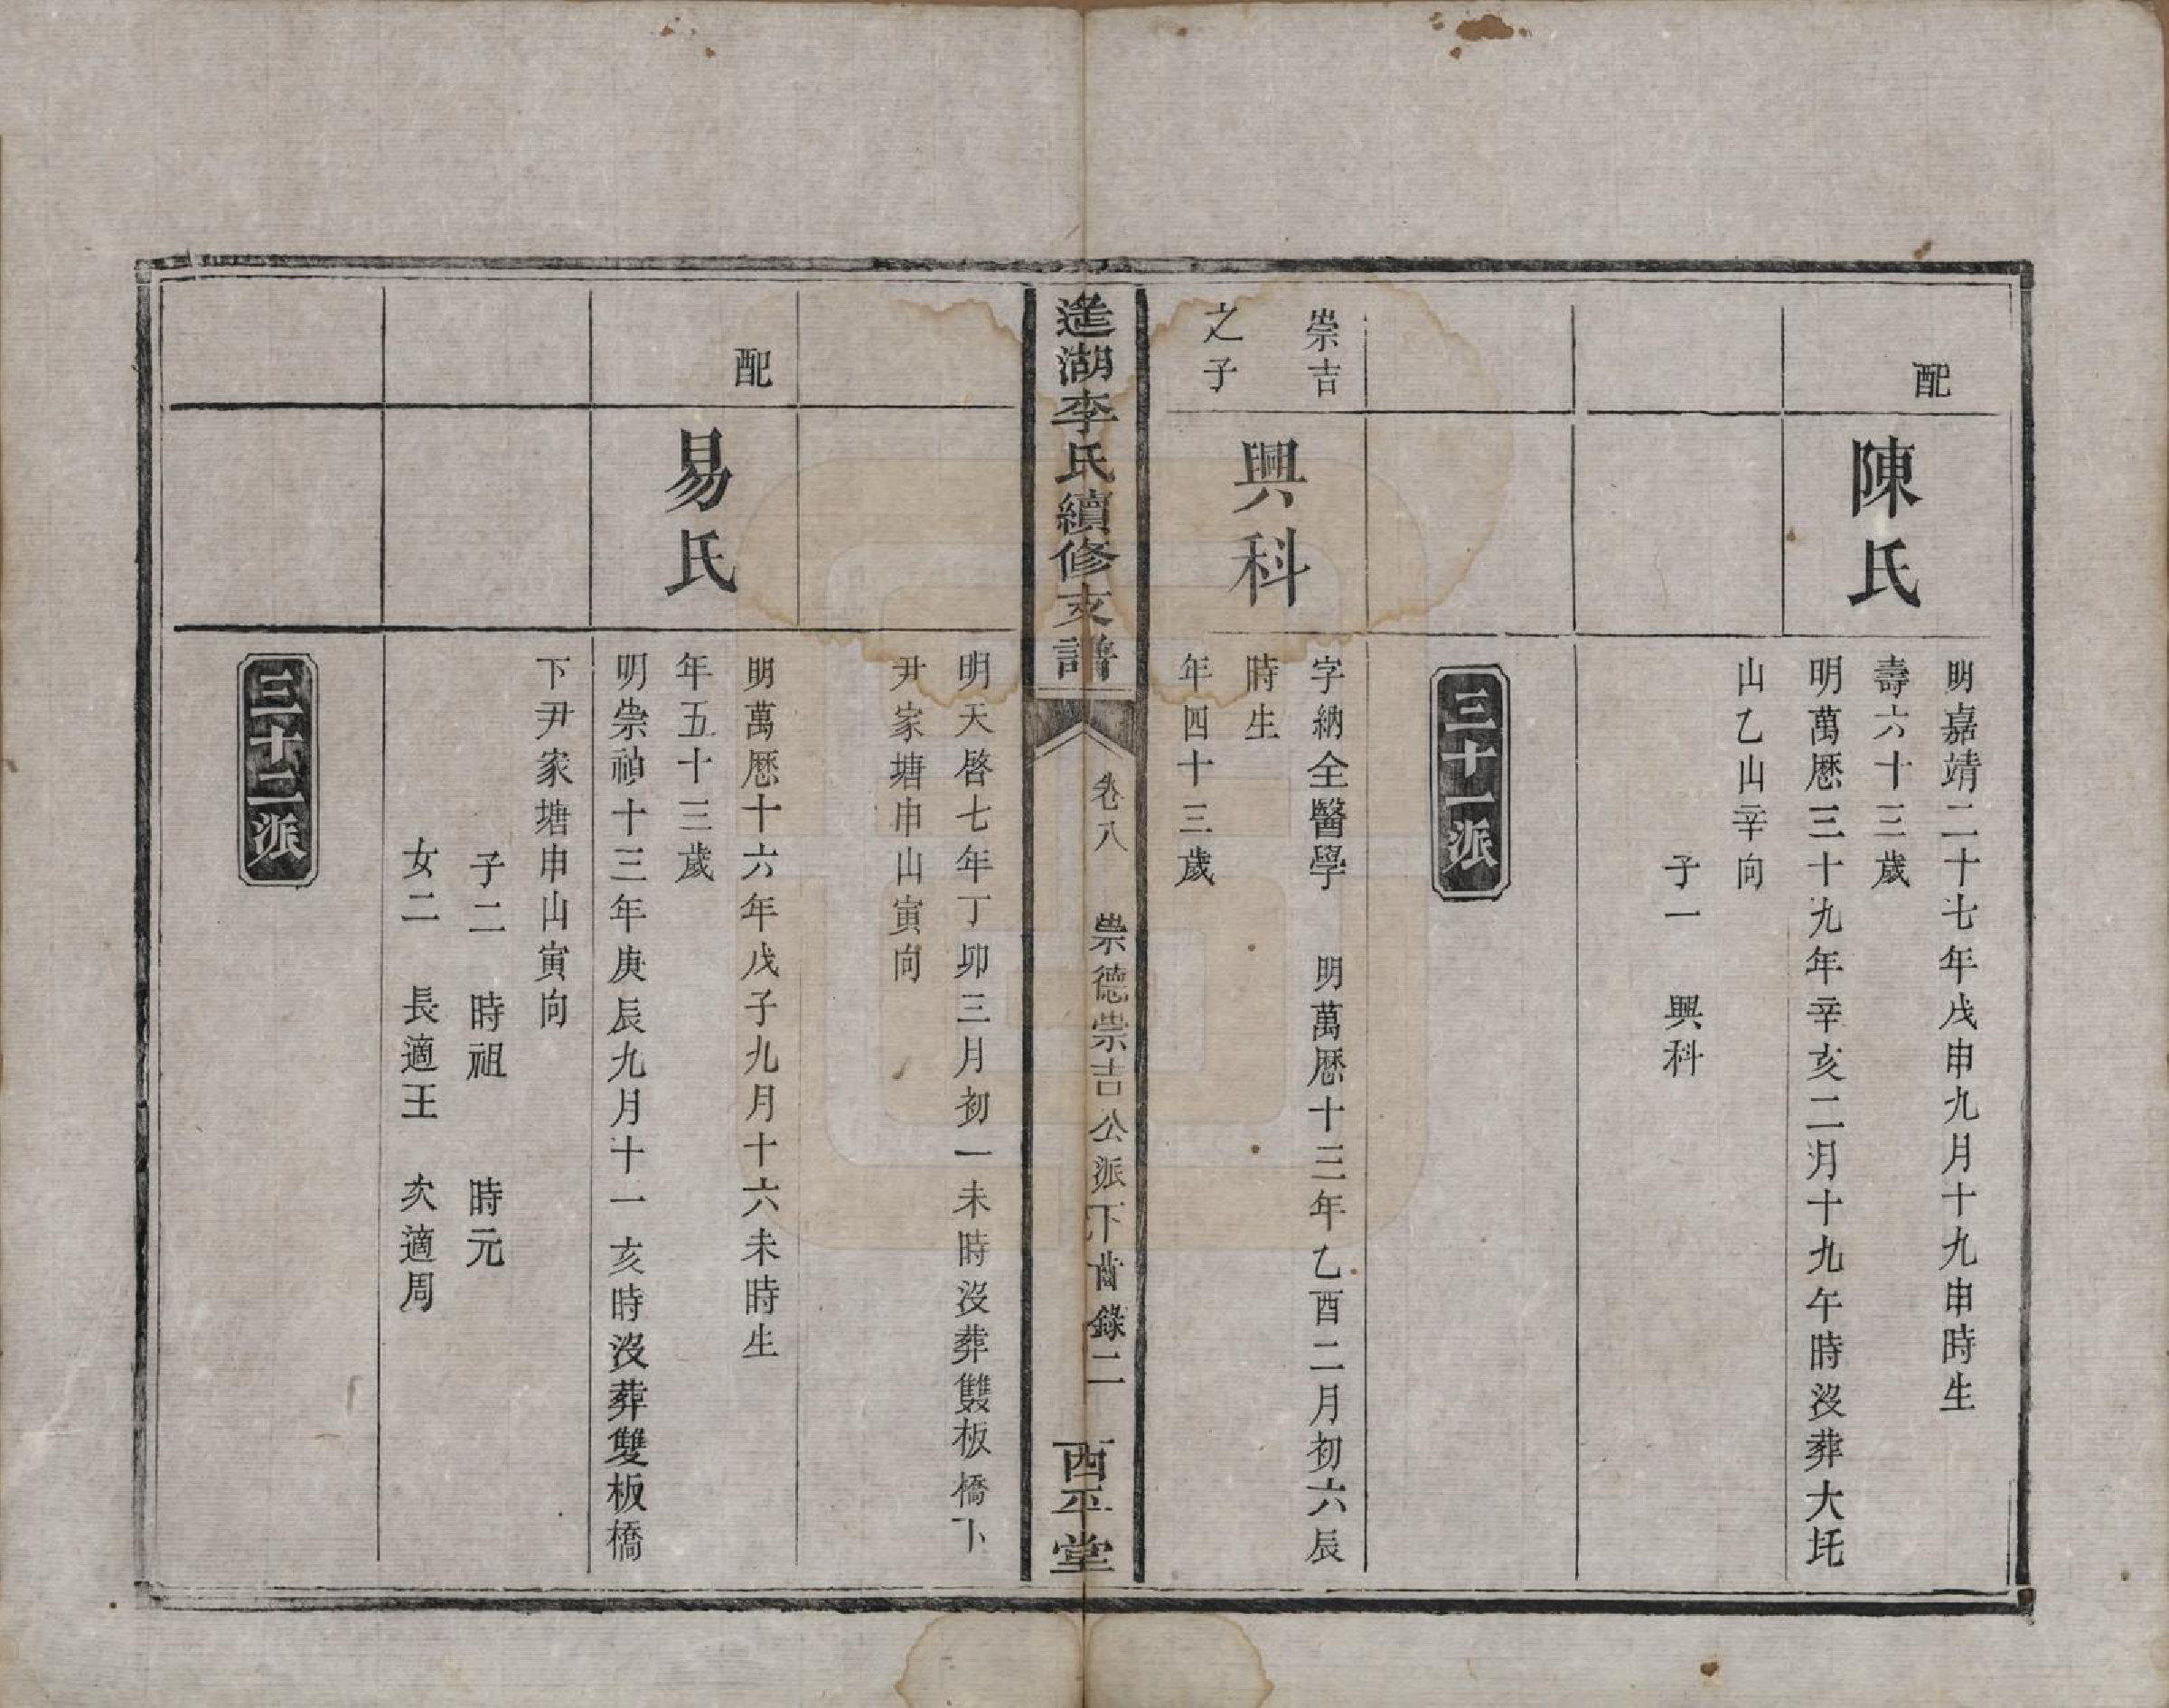 配
陳氏
明嘉靖二十七年戊申九月十九申時生
壽六十三歲
明萬厯三十九年辛亥二月十九午時沒葬大圫
山乙山辛向
子一　興科
三十一派
崇吉
之子
興科
字納全醫學　明萬厯十三年乙酉二月初六辰
時生
年四十三歲
逰湖李氏續修支譜
卷八　崇德崇吉公派下齒錄二
西平堂
明天啓七年丁卯三月初一未時沒葬雙板橋下
尹家塘申山寅向
配
易氏
明萬厯十六年戊子九月十六未時生
年五十三歲
明崇禎十三年庚辰九月十一亥時沒葬雙板橋
下尹家塘申山寅向
子二　時祖　時元
女二　長適王　次適周
三十二派